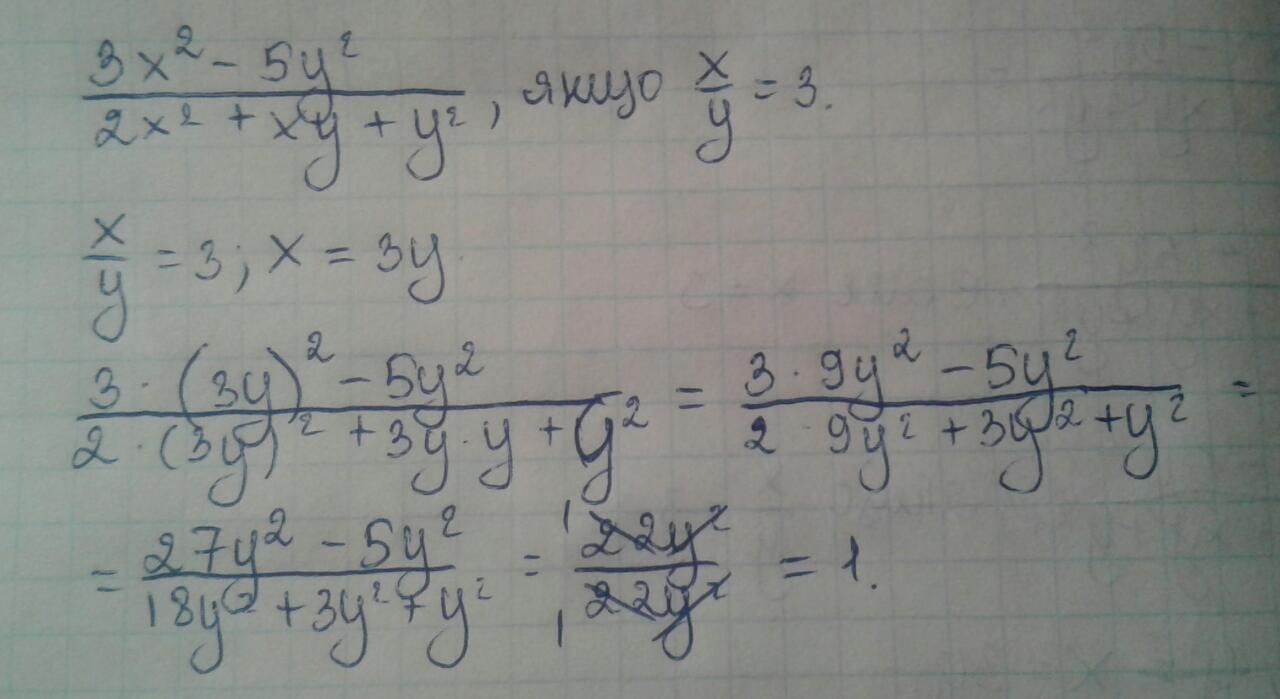 (3x² - 5y²)/(2x² + xy + y²), якщо x/y = 3.
x/y = 3; x = 3y
(3·(3y)² - 5y²)/(2·(3y)² + 3y·y + y²) = (3·9y² - 5y²)/(2·9y² + 3y² + y²) =
= (27y² - 5y²)/(18y² + 3y² + y²) = ¹22y²/₁22y² = 1.